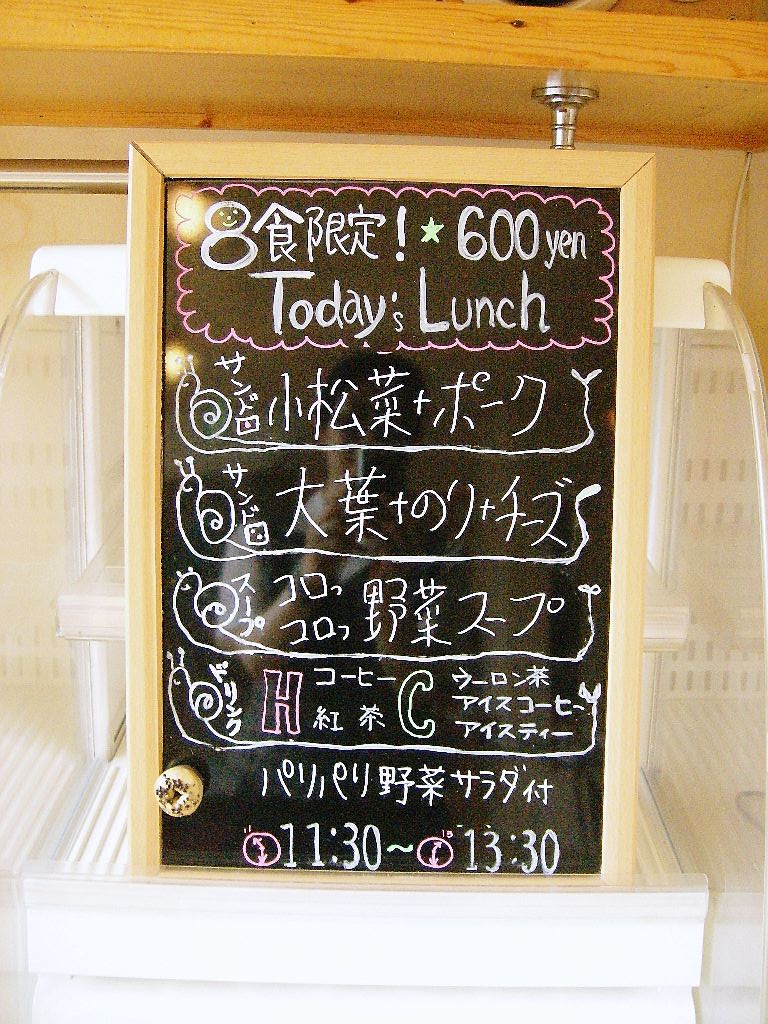 8食限定!★600yen
Today's Lunch
サンド 小松菜+ポーク
サンド 大葉+のり+チーズ
スープ コロッコロッ野菜スープ
ドリンク H コーヒー 紅茶 C ウーロン茶 アイスコーヒー アイスティー
パリパリ野菜サラダ付
11:30~13:30